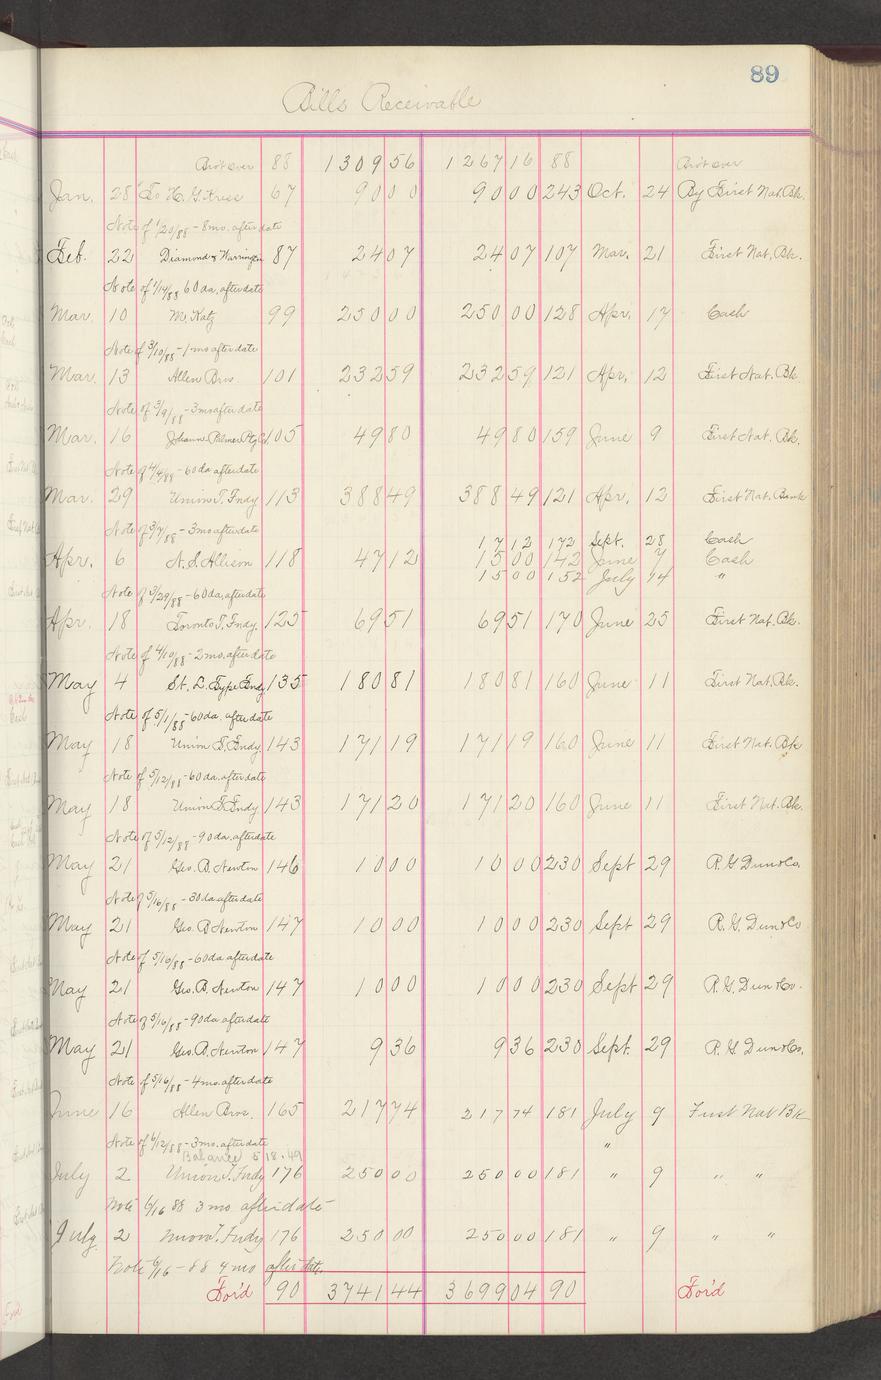 89
Bills Receivable
Bro't over 88 1309 56 1267 16 88 Bro't over
Jan. 28 To H. G. Kress 67 90 00 90 00 243 Oct. 24 By First Nat. Bk.
Note of 1/20/88 - 8 mo. after date
Feb. 22 Diamond & Warringen 87 24 07 24 07 107 Mar. 21 First Nat. Bk.
Note of 1/14/88 60 da. after date
Mar. 10 M. Katz 99 250 00 250 00 128 Apr. 17 Cash
Note of 3/10/88 - 1 mo after date
Mar. 13 Allen Bros 101 232 59 232 59 121 Apr. 12 First Nat. Bk.
Note of 3/9/88 - 3 mo after date
Mar. 16 Palmer Ptg Co. 105 49 80 49 80 159 June 9 First Nat. Bk.
Note of 4/4/88 - 60 da after date
Mar. 29 Union T. Fndy 113 388 49 388 49 121 Apr. 12 First Nat. Bank
Note of 3/7/88 - 3 mo after date
17 12 172 Sept. 28 Cash
Apr. 6 N. S. Allison 118 47 12 15 00 142 June 7 Cash
15 00 152 July 14 "
Note of 3/29/88 - 60 da. after date
Apr. 18 Toronto T. Fndy. 125 69 51 69 51 170 June 25 First Nat. Bk.
Note of 4/10/88 - 2 mo. after date
May 4 St. L. Type Fndy 135 180 81 180 81 160 June 11 First Nat. Bk.
Note of 5/1/88 - 60 da. after date
May 18 Union T. Fndy. 143 171 19 171 19 160 June 11 First Nat. Bk
Note of 5/12/88 - 60 da. after date
May 18 Union T. Fndy 143 171 20 171 20 160 June 11 First Nat. Bk.
Note of 5/12/88 - 90 da. after date
May 21 Geo. B. Newton 146 10 00 10 00 230 Sept 29 R. G. Dun & Co.
Note of 5/16/88 - 30 da after date
May 21 Geo. B Newton 147 10 00 10 00 230 Sept 29 R. G. Dun & Co
Note of 5/16/88 - 60 da. after date
May 21 Geo. B. Newton 147 10 00 10 00 230 Sept 29 R. G. Dun & Co.
Note of 5/16/88 - 90 da after date
May 21 Geo. B. Newton 147 9 36 9 36 230 Sept. 29 R. G. Dun & Co.
Note of 5/16/88 - 4 mo. after date
June 16 Allen Bros. 165 217 74 217 74 181 July 9 First Nat Bk
Note of 6/12/88 - 3 mo. after date "
Balance 518.49
July 2 Union T. Fndy 176 250 00 250 00 181 " 9 " "
Note 6/16 88 3 mo after date
July 2 Union T. Fndy 176 250 00 250 00 181 " 9 " "
Note 6/16 - 88 4 mo after date.
For'd 90 3741 44 3699 04 90 For'd